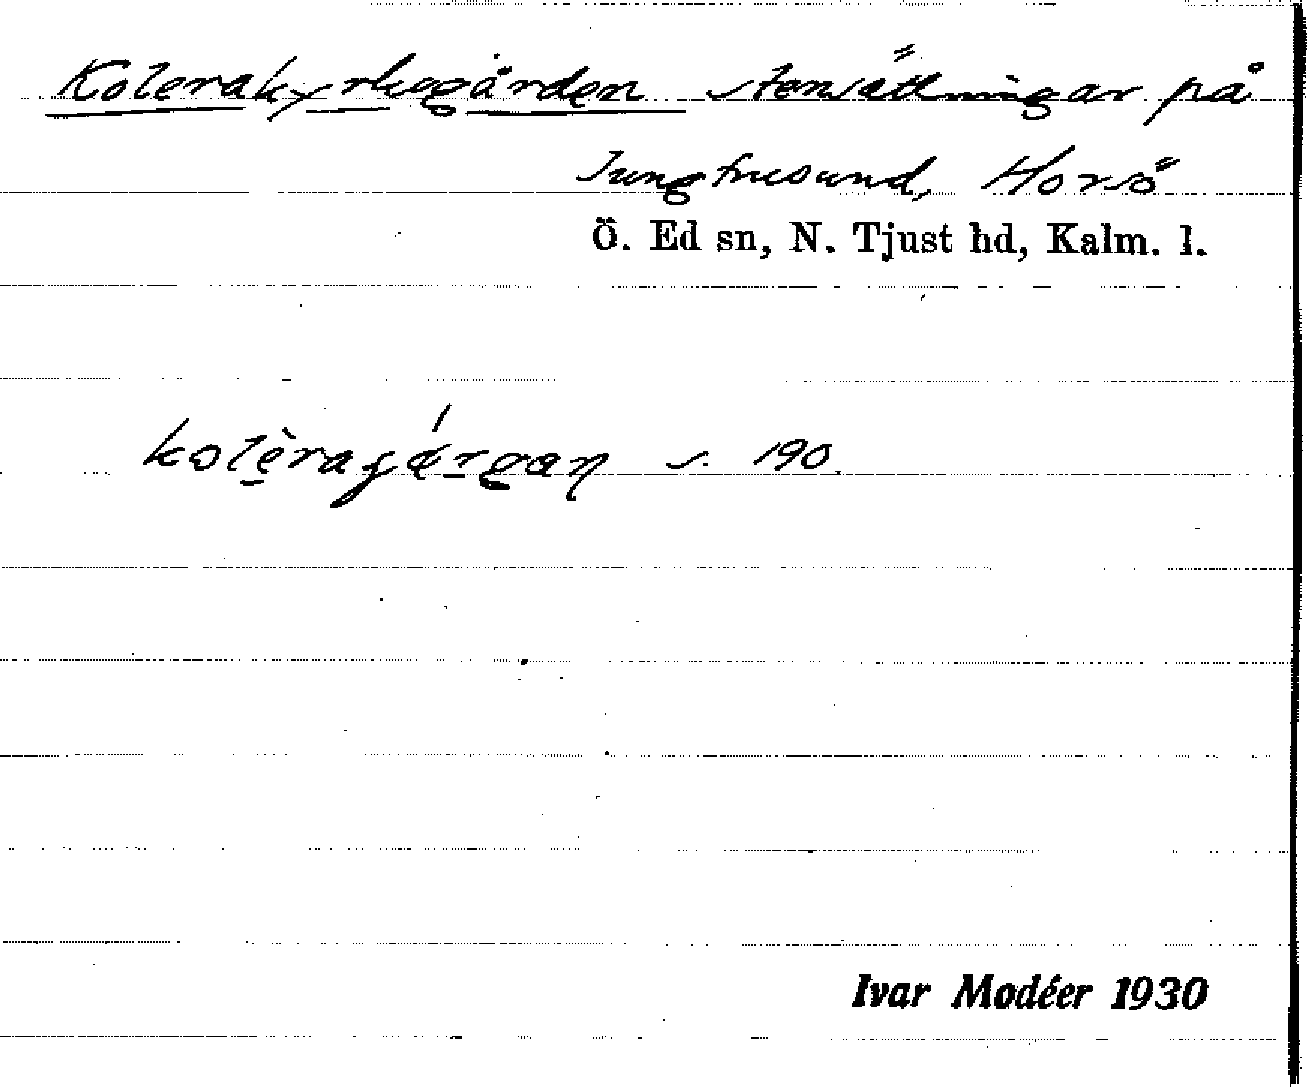 Kolerakyrkogården stensättningar på
Jungfrusund, Horsö
Ö. Ed sn, N. Tjust hd, Kalm. l.
s. 190.
Ivar Modéer 1930